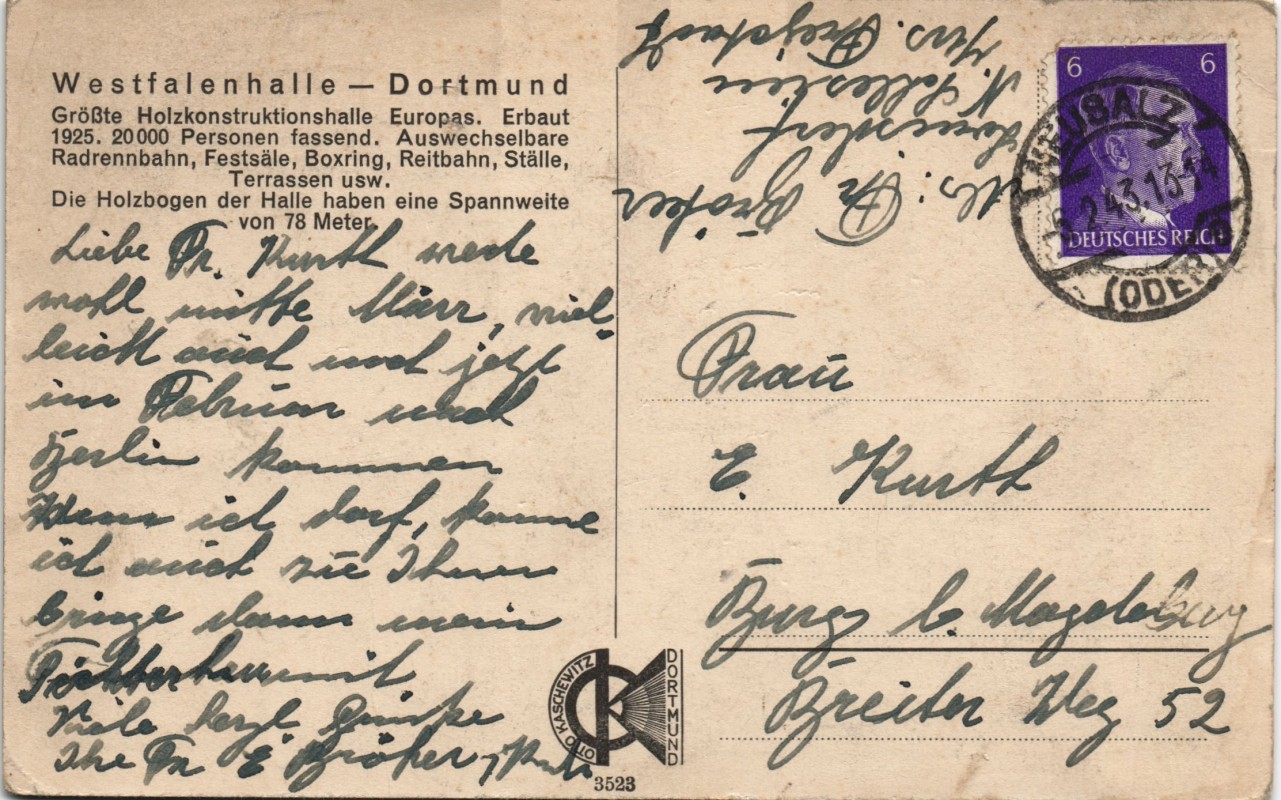 Westfalenhalle — Dortmund
Größte Holzkonstruktionshalle Europas. Erbaut
1925. 20000 Personen fassend. Auswechselbare
Radrennbahn, Festsäle, Boxring, Reitbahn, Ställe,
Terrassen usw.
Die Holzbogen der Halle haben eine Spannweite
von 78 Meter.
Liebe Fr. Kurth werde
wohl mitte März, viel-
leicht auch noch jetzt
im Februar nach
Berlin kommen
Wenn ich darf, komme
ich auch zu Ihnen
bringe dann mein
Töchterchen mit
Viele herzl Grüße
Ihre Fr E Bröker
Abs: Fr Bröker
Krs. Freystadt
6 6
DEUTSCHES REICH
NEUSALZ
2.43.13-14
(ODER)
Frau
E. Kurth
Burg b. Magdeburg
Breiter Weg 52
OTTO KASCHEWITZ
DORTMUND
3523